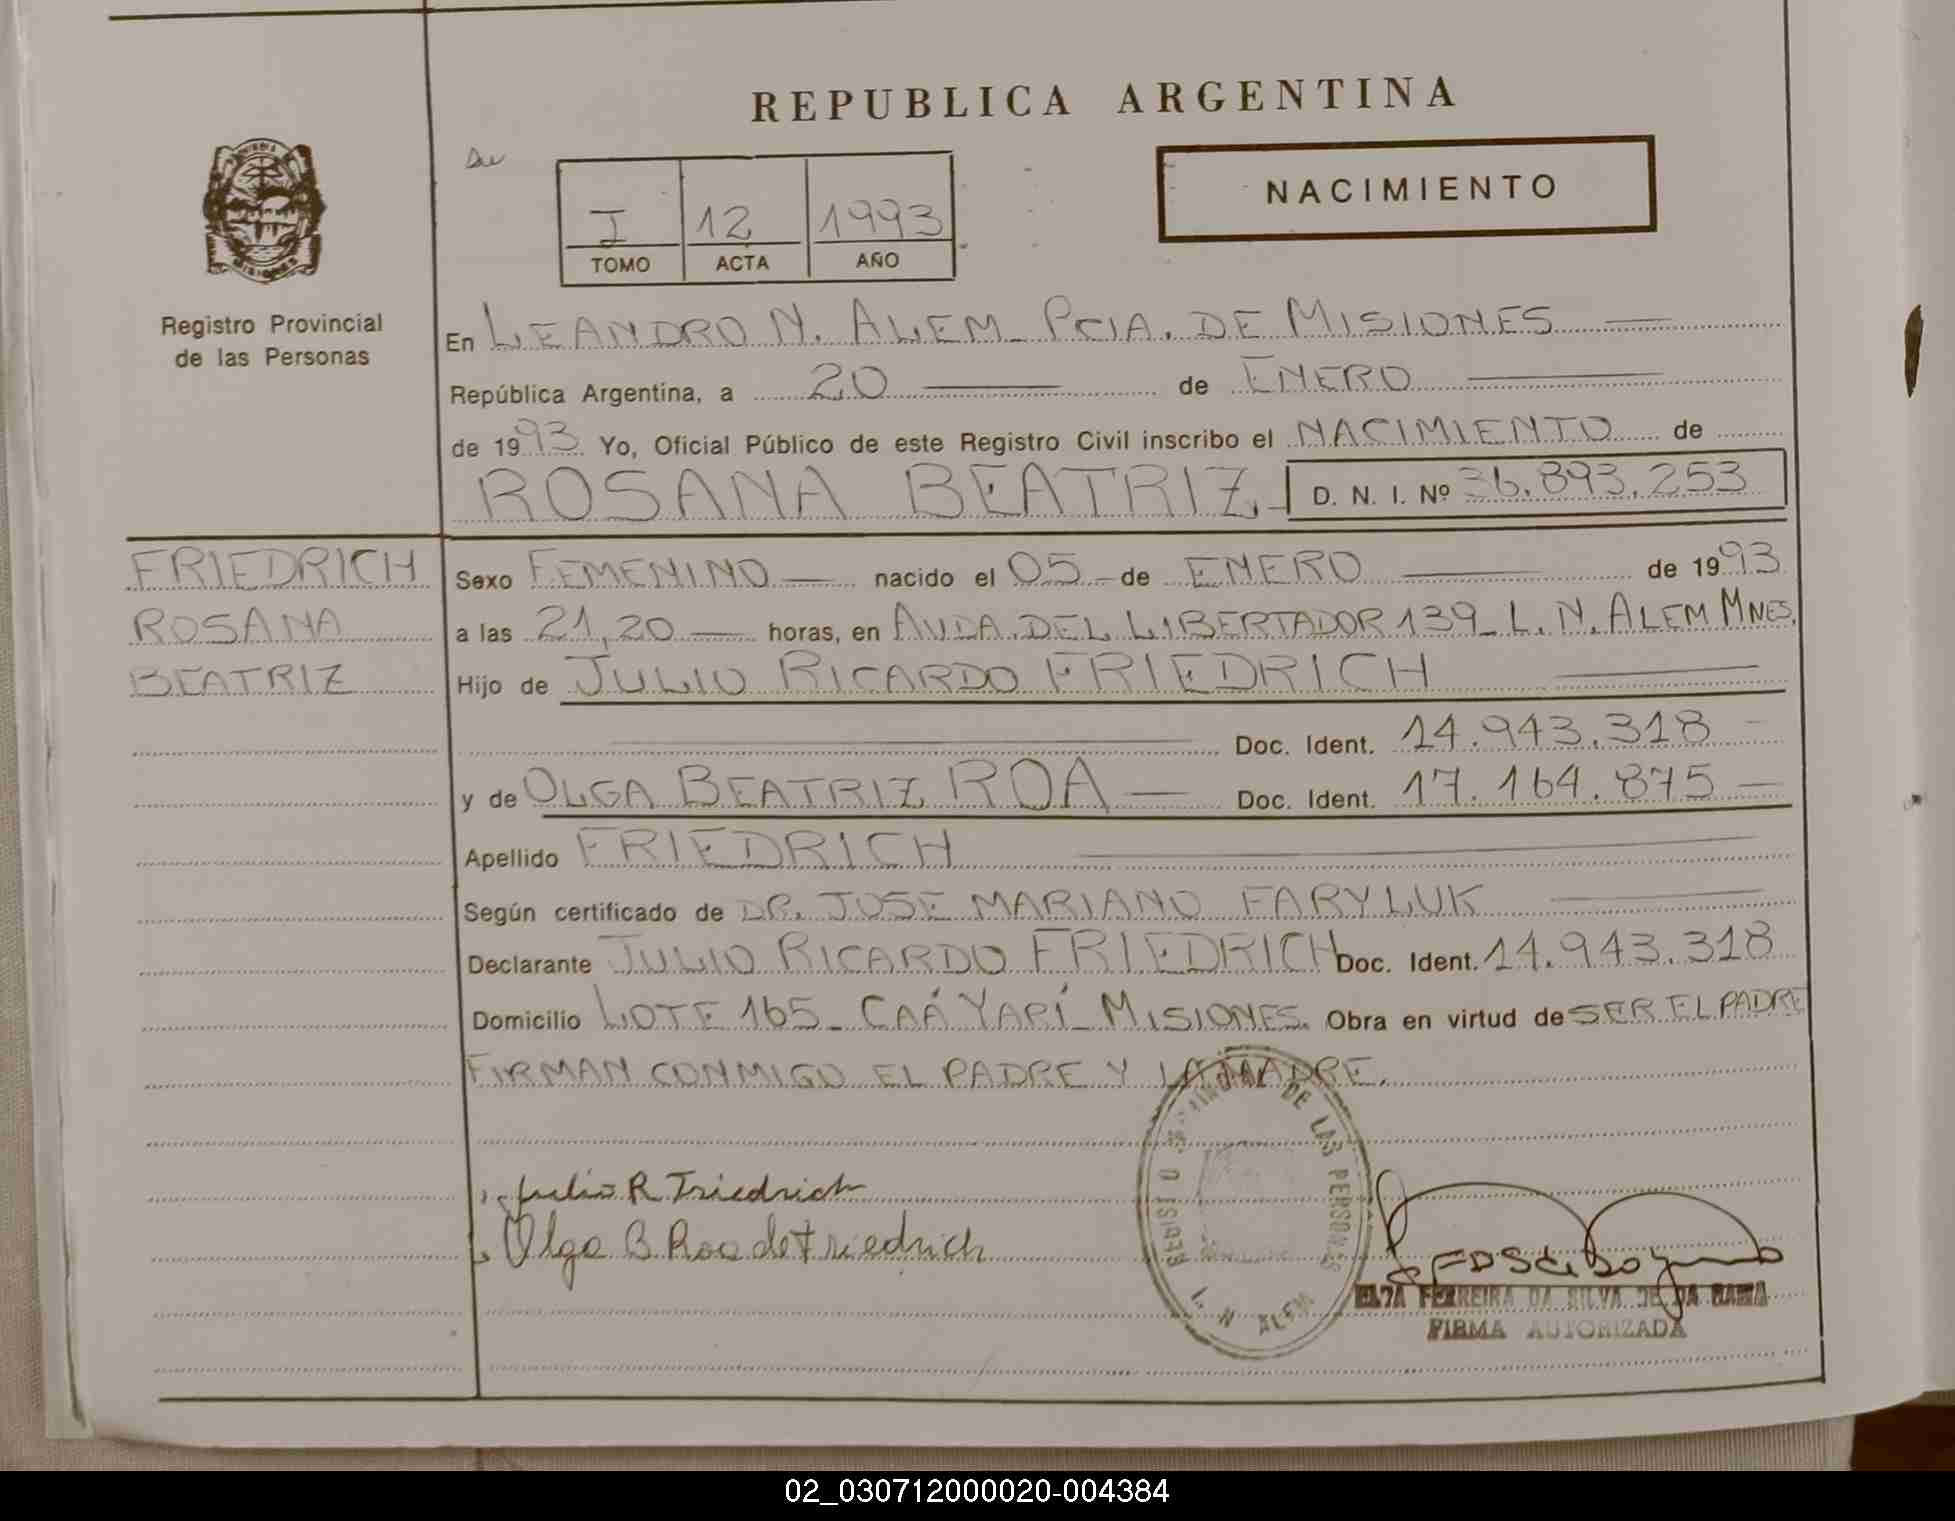 REPUBLICA ARGENTINA
I 12 1993
TOMO ACTA AÑO
NACIMIENTO
MISIONES
Registro Provincial
de las Personas
En LEANDRO N. ALEM_ PCIA. DE MISIONES
República Argentina, a 20 de ENERO
de 1993 Yo, Oficial Público de este Registro Civil inscribo el NACIMIENTO de
ROSANA BEATRIZ D. N. I. Nº 36.893.253
FRIEDRICH
ROSANA
BEATRIZ
Sexo FEMENINO nacido el 05 de ENERO de 1993
a las 21,20 horas, en AVDA. DEL LIBERTADOR 139_ L. N. ALEM MNES.
Hijo de JULIO RICARDO FRIEDRICH
Doc. Ident. 14.943.318
y de OLGA BEATRIZ ROA Doc. Ident. 17.164.875
Apellido FRIEDRICH
Según certificado de DR. JOSE MARIANO FARYLUK
Declarante JULIO RICARDO FRIEDRICH Doc. Ident. 14.943.318
Domicilio LOTE 165_ CAÁ YARÍ_ MISIONES. Obra en virtud de SER EL PADRE
FIRMAN CONMIGO EL PADRE Y LA MADRE.
Julio R Friedrich
Olga B Roa de Friedrich
REGISTRO PROVINCIAL DE LAS PERSONAS
L. N. ALEM
FERREIRA DA SILVA DE DA
FIRMA AUTORIZADA
02_030712000020-004384